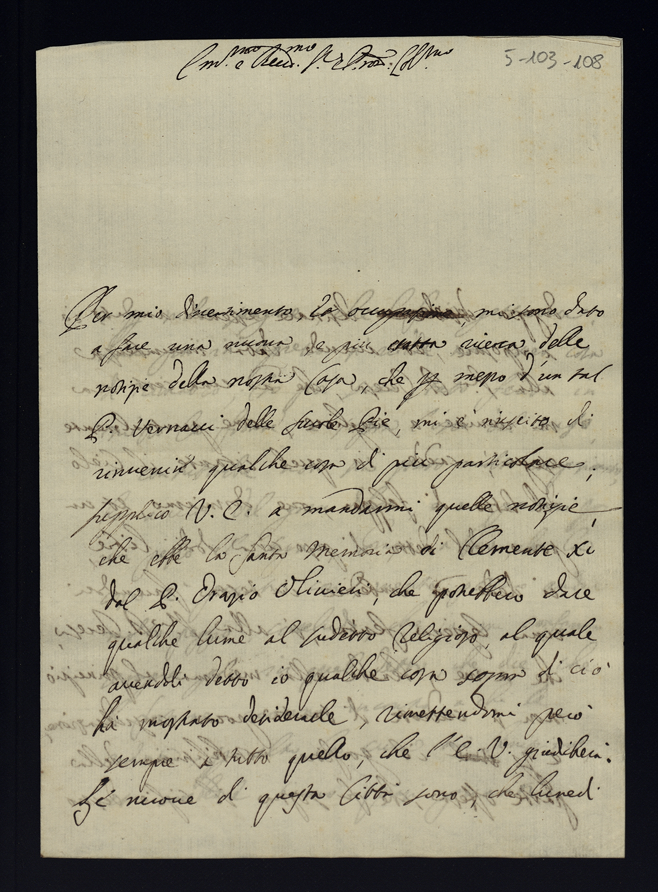 Em.mo e Rev.mo S.r e Pron: Col.mo
5-103-108
Per mio divertimento, ed occupazione, mi sono dato
a fare una nuova, e più esatta ricerca delle
notizie della nostra Casa, che p mezzo d'un tal
P. Vernacci delle Scuole Pie, mi è riuscito di
rinvenir qualche cosa di più particolare;
supplico V. E. a mandarmi quelle notizie,
che ebbe la Santa Memoria di Clemente XI
dal P. Orazio Olivieri, che potrebbero dare
qualche lume al sudetto Religioso, al quale
avendoli detto io qualche cosa sopra di ciò
ha mostrato desiderarle, rimettendomi però
sempre a tutto quello, che l'E. V. giudicherà.
Le nuove di questa Città sono, che lunedì